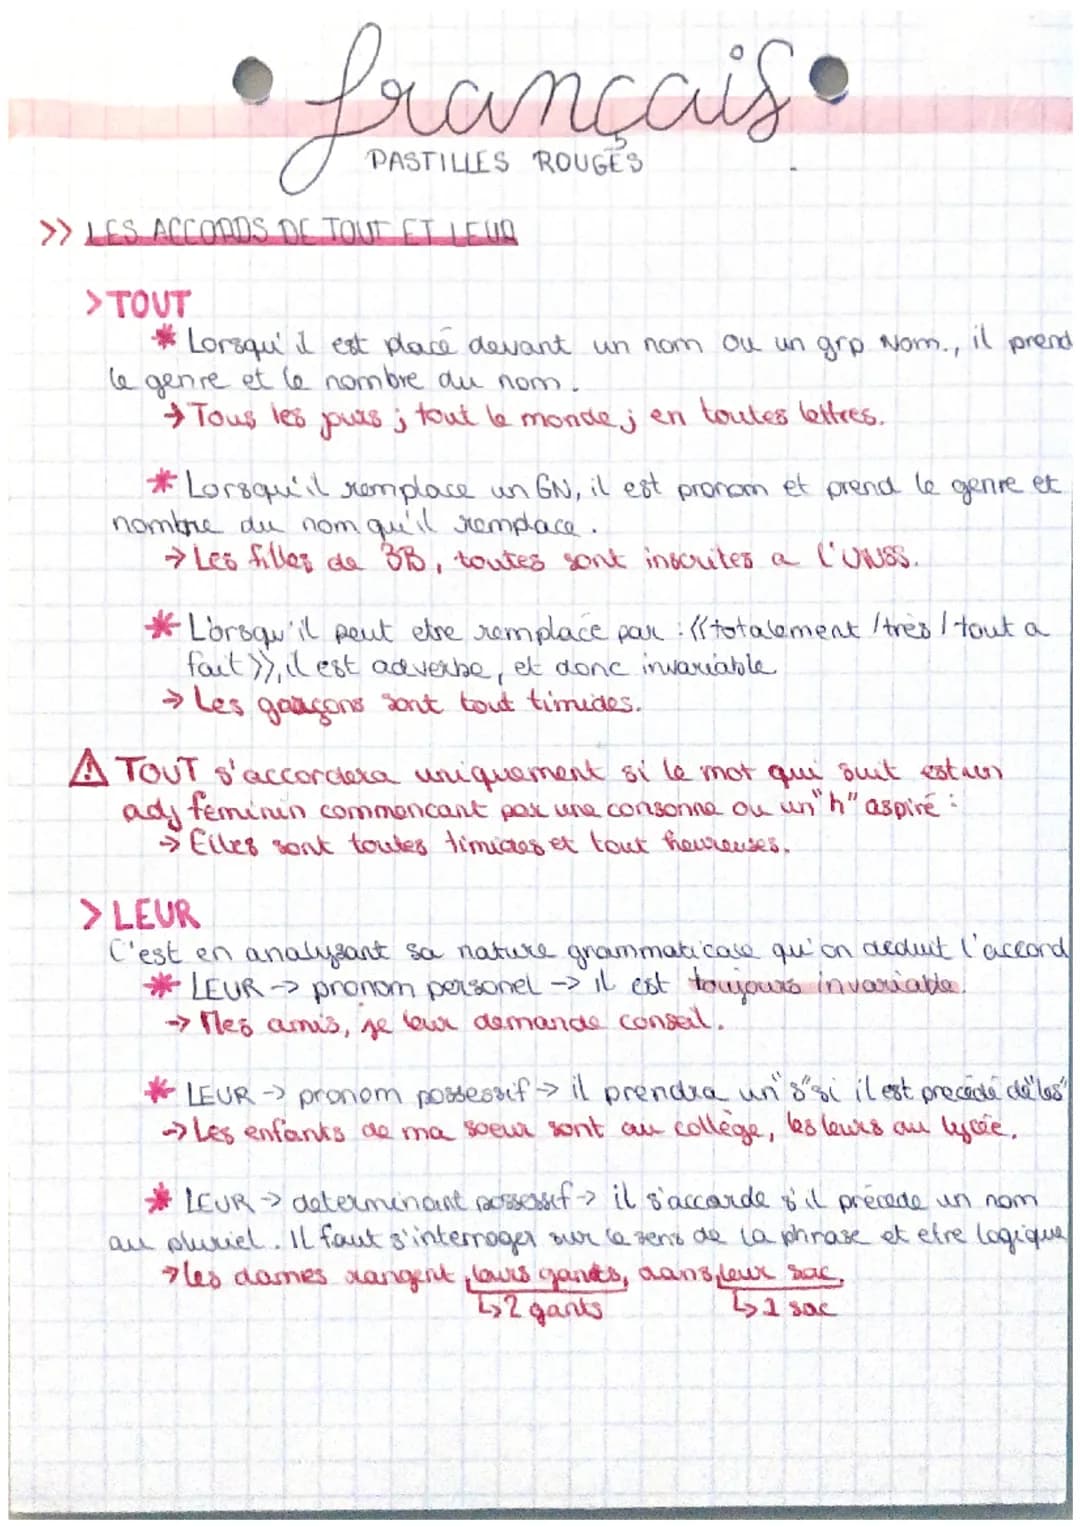 • français •
PASTILLES ROUGES
>> LES ACCORDS DE TOUT ET LEUR
> TOUT
* Lorsqu'il est placé devant un nom ou un grp Nom., il prend
le genre et le nombre du nom.
→ Tous les jours ; tout le monde ; en toutes lettres.
* Lorsqu'il remplace un GN, il est pronom et prend le genre et
nombre du nom qu'il remplace.
→ Les filles de 3B, toutes sont inscrites a l'UNSS.
* Lorsqu'il peut etre remplacé par : «totalement / très / tout a
fait», il est adverbe, et donc invariable
→ Les garçons sont tout timides.
⚠ TOUT s'accordera uniquement si le mot qui suit est un
adj féminin commencant par une consonne ou un "h" aspiré :
→ Elles sont toutes timides et tout heureuses.
> LEUR
C'est en analysant sa nature grammaticale qu'on deduit l'accord
* LEUR → pronom personel → il est toujours invariable.
→ Mes amis, je leur demande conseil.
* LEUR → pronom possessif → il prendra un "s" si il est precédé de "les"
→ Les enfants de ma soeur sont au collège, les leurs au lycée.
* LEUR → determinant possessif → il s'accorde s'il précede un nom
au pluriel. Il faut s'interroger sur le sens de la phrase et etre logique
→ les dames rangent leurs gants, dans leur sac.
↳ 2 gants ↳ 1 sac